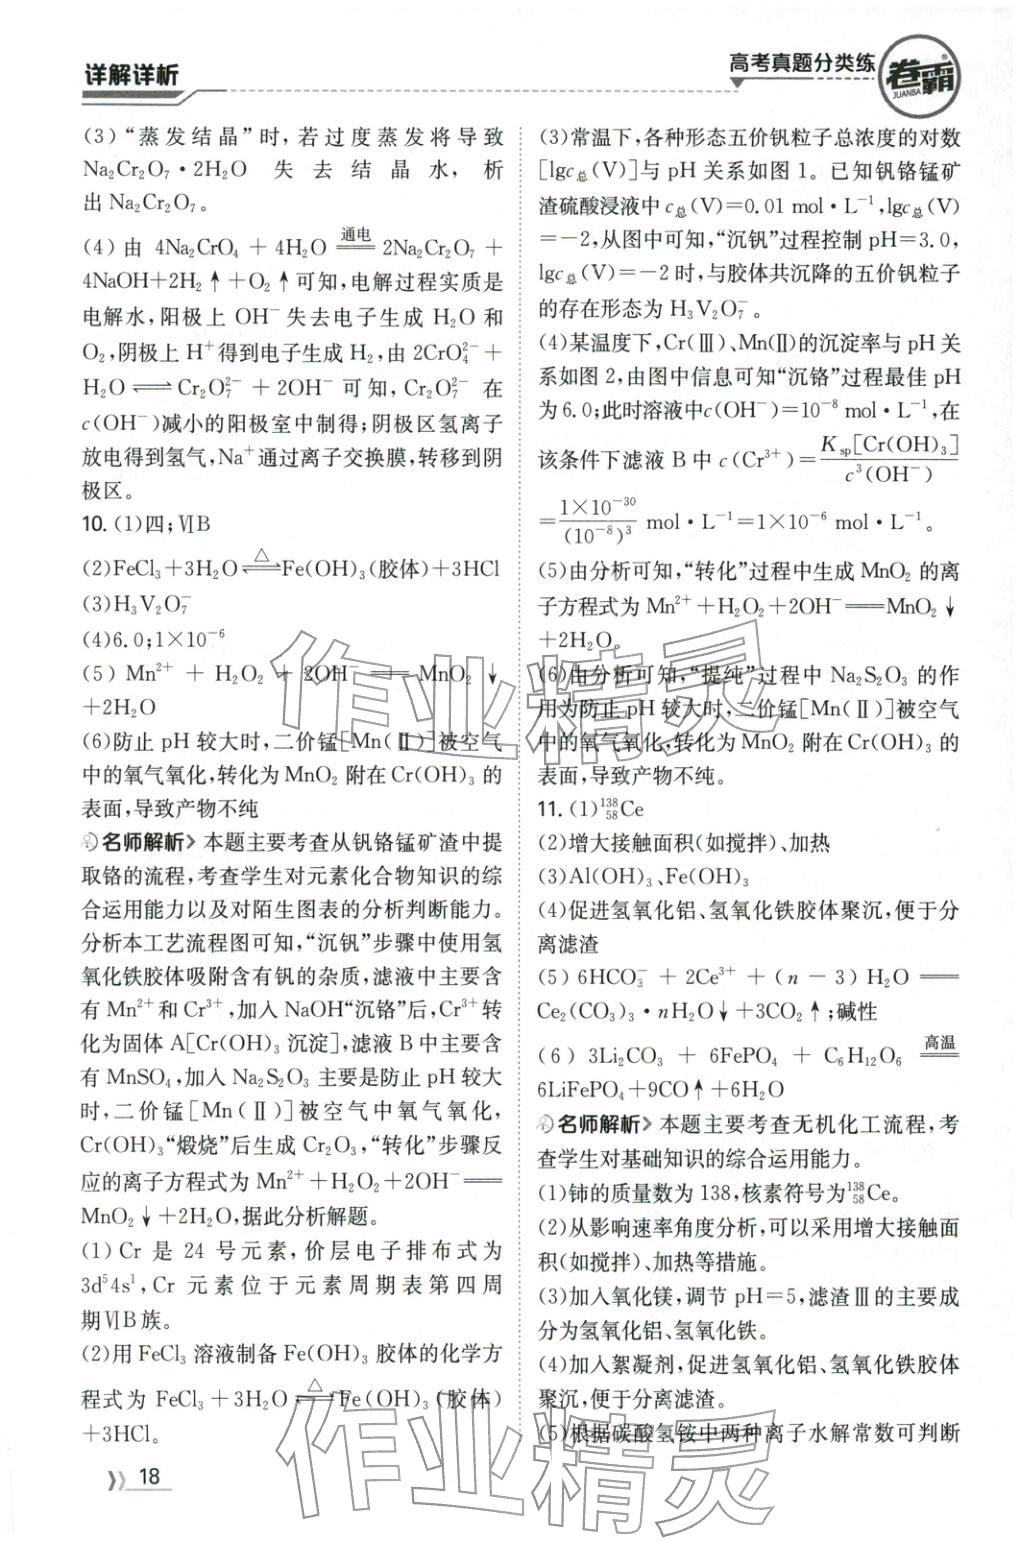 详解详析
高考真题分类练
卷霸
JUANBA
(3)“蒸发结晶”时,若过度蒸发将导致
Na₂Cr₂O₇·2H₂O 失去结晶水,析
出Na₂Cr₂O₇。
(4)由 4Na₂CrO₄ + 4H₂O ══(通电) 2Na₂Cr₂O₇ +
4NaOH+2H₂↑+O₂↑可知,电解过程实质是
电解水,阳极上 OH⁻失去电子生成 H₂O 和
O₂,阴极上 H⁺得到电子生成 H₂,由 2CrO₄²⁻ +
H₂O ⇌ Cr₂O₇²⁻ + 2OH⁻ 可知, Cr₂O₇²⁻ 在
c(OH⁻)减小的阳极室中制得;阴极区氢离子
放电得到氢气,Na⁺通过离子交换膜,转移到阴
极区。
10. (1)四;ⅥB
(2)FeCl₃+3H₂O ⇌(△) Fe(OH)₃(胶体)+3HCl
(3)H₃V₂O₇⁻
(4)6.0;1×10⁻⁶
(5) Mn²⁺ + H₂O₂ + 2OH⁻ ══ MnO₂ ↓
+2H₂O
(6)防止 pH 较大时,二价锰[Mn(Ⅱ)]被空气
中的氧气氧化,转化为 MnO₂ 附在 Cr(OH)₃ 的
表面,导致产物不纯
名师解析 本题主要考查从钒铬锰矿渣中提
取铬的流程,考查学生对元素化合物知识的综
合运用能力以及对陌生图表的分析判断能力。
分析本工艺流程图可知,“沉钒”步骤中使用氢
氧化铁胶体吸附含有钒的杂质,滤液中主要含
有 Mn²⁺和 Cr³⁺,加入 NaOH“沉铬”后,Cr³⁺转
化为固体 A[Cr(OH)₃ 沉淀],滤液 B 中主要含
有 MnSO₄,加入 Na₂S₂O₃ 主要是防止 pH 较大
时,二价锰[Mn(Ⅱ)]被空气中氧气氧化,
Cr(OH)₃“煅烧”后生成 Cr₂O₃,“转化”步骤反
应的离子方程式为 Mn²⁺+H₂O₂+2OH⁻══
MnO₂↓+2H₂O,据此分析解题。
(1) Cr 是 24 号元素,价层电子排布式为
3d⁵4s¹,Cr 元素位于元素周期表第四周
期ⅥB族。
(2)用 FeCl₃ 溶液制备 Fe(OH)₃ 胶体的化学方
程式为 FeCl₃ + 3H₂O ⇌(△) Fe(OH)₃(胶体)
+3HCl。
18
(3)常温下,各种形态五价钒粒子总浓度的对数
[lgc总(V)]与 pH 关系如图 1。已知钒铬锰矿
渣硫酸浸液中 c总(V)=0.01 mol·L⁻¹,lgc总(V)
=-2,从图中可知,“沉钒”过程控制 pH=3.0,
lgc总(V)=-2 时,与胶体共沉降的五价钒粒子
的存在形态为 H₃V₂O₇⁻。
(4)某温度下,Cr(Ⅲ)、Mn(Ⅱ)的沉淀率与 pH 关
系如图 2,由图中信息可知“沉铬”过程最佳 pH
为 6.0;此时溶液中c(OH⁻)=10⁻⁸ mol·L⁻¹,在
该条件下滤液 B 中 c(Cr³⁺)=Ksp[Cr(OH)₃]/c³(OH⁻)
=1×10⁻³⁰/(10⁻⁸)³ mol·L⁻¹=1×10⁻⁶ mol·L⁻¹。
(5)由分析可知,“转化”过程中生成 MnO₂ 的离
子方程式为 Mn²⁺+H₂O₂+2OH⁻══MnO₂↓
+2H₂O。
(6)由分析可知,“提纯”过程中 Na₂S₂O₃ 的作
用为防止 pH 较大时,二价锰[Mn(Ⅱ)]被空气
中的氧气氧化,转化为 MnO₂ 附在Cr(OH)₃ 的
表面,导致产物不纯。
11. (1)¹³⁸₅₈Ce
(2)增大接触面积(如搅拌)、加热
(3)Al(OH)₃、Fe(OH)₃
(4)促进氢氧化铝、氢氧化铁胶体聚沉,便于分
离滤渣
(5) 6HCO₃⁻ + 2Ce³⁺ + (n - 3) H₂O ══
Ce₂(CO₃)₃·nH₂O↓+3CO₂↑;碱性
(6) 3Li₂CO₃ + 6FePO₄ + C₆H₁₂O₆ ══(高温)
6LiFePO₄+9CO↑+6H₂O
名师解析 本题主要考查无机化工流程,考
查学生对基础知识的综合运用能力。
(1)铈的质量数为 138,核素符号为¹³⁸₅₈Ce。
(2)从影响速率角度分析,可以采用增大接触面
积(如搅拌)、加热等措施。
(3)加入氧化镁,调节 pH=5,滤渣Ⅲ的主要成
分为氢氧化铝、氢氧化铁。
(4)加入絮凝剂,促进氢氧化铝、氢氧化铁胶体
聚沉,便于分离滤渣。
(5)根据碳酸氢铵中两种离子水解常数可判断
作业精灵
作业精灵